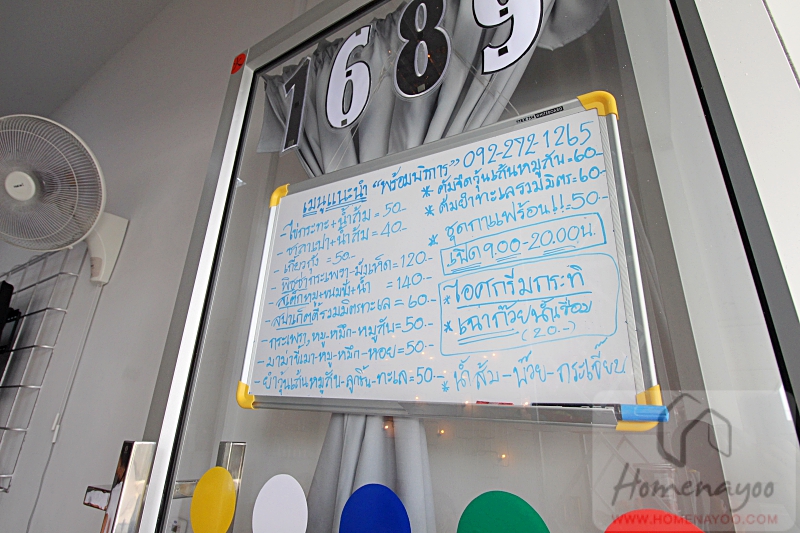 1689
เมนูแนะนำ "พร้อมบริการ" 092-272-1265
- ไข่กระทะ+น้ำส้ม = 50.-
- ซาลาเปา+น้ำส้ม = 40.-
- เกี๊ยวกุ้ง = 50.-
- พิซซ่ากระเพรา-ผักเห็ด = 120.-
- สเต็กหมู+ขนมปัง+น้ำ = 140.-
- สปาเก็ตตี้รวมมิตรทะเล = 60.-
- กระเพรา,หมู-หมึก-หมูสับ = 50.-
- มาม่าขี้เมา-หมู-หมึก-หอย = 50.-
- ยำวุ้นเส้นหมูสับ-ลูกชิ้น-ทะเล = 50.-
* ต้มจืดวุ้นเส้นหมูสับ = 60.-
* ต้มยำทะเลรวมมิตร = 60.-
* ชุดกาแฟร้อน!! = 50.-
เปิด 9.00-20.00น.
* ไอศกรีมกะทิ
* เฉาก๊วยน้ำเชื่อม
(20.-)
* น้ำส้ม-บ๊วย-กระเจี๊ยบ
Homenayoo
WWW.HOMENAYOO.COM